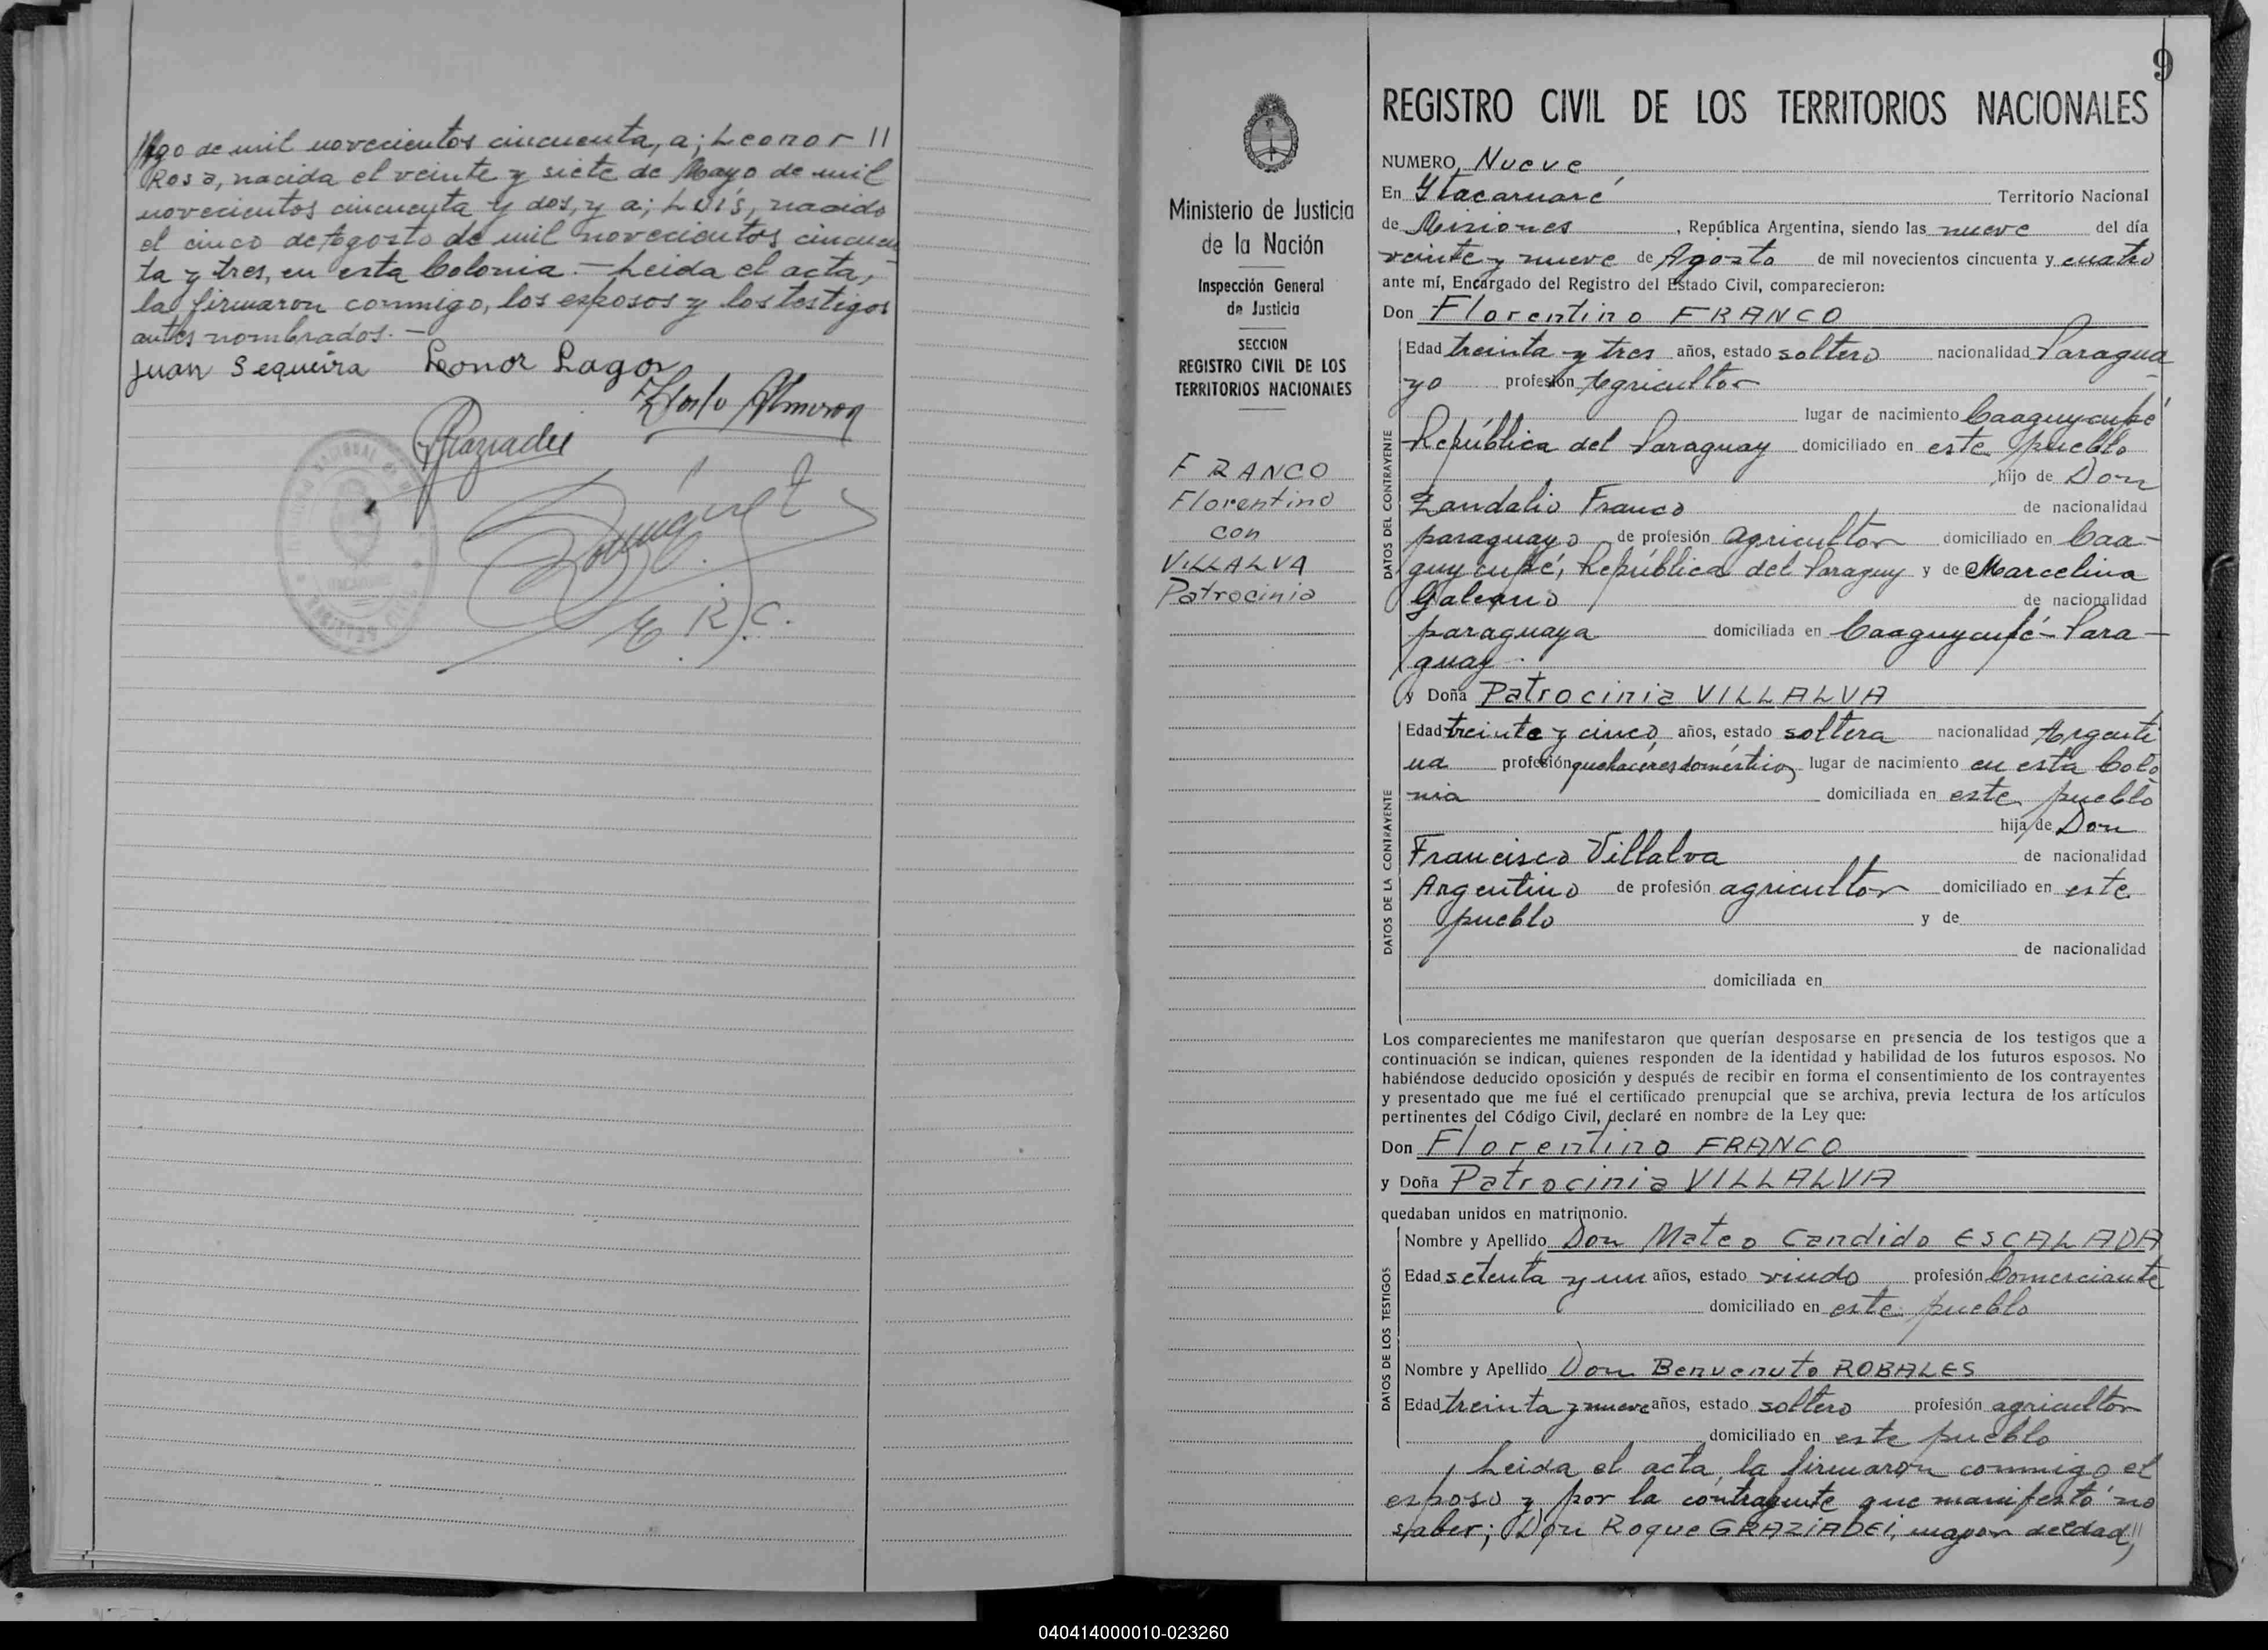 //go de mil novecientos cincuenta, a; Leonor //
Rosa, nacida el veinte y siete de Mayo de mil
novecientos cincuenta y dos, y a; Luis, nacido
el cinco de Agosto de mil novecientos cincuen
ta y tres, en esta Colonia.- Leida el acta,
la firmaron conmigo, los esposos y los testigos
antes nombrados.-
Juan Sequeira Leonor Lagos
E. R. C.
Ministerio de Justicia
de la Nación
Inspección General
de Justicia
SECCION
REGISTRO CIVIL DE LOS
TERRITORIOS NACIONALES
FRANCO
Florentino
con
VILLALVA
Patrocinia
9
REGISTRO CIVIL DE LOS TERRITORIOS NACIONALES
NUMERO Nueve
En Itacaruaré Territorio Nacional
de Misiones, República Argentina, siendo las nueve del día
veinte y nueve de Agosto de mil novecientos cincuenta y cuatro
ante mí, Encargado del Registro del Estado Civil, comparecieron:
Don Florentino FRANCO
DATOS DEL CONTRAYENTE
Edad treinta y tres años, estado soltero nacionalidad Paragua
yo profesión Agricultor
lugar de nacimiento Caaguycupé
República del Paraguay domiciliado en este pueblo
hijo de Don
Zandalio Franco de nacionalidad
paraguayo de profesión agricultor domiciliado en Caa-
guycupé, República del Paraguay y de Marcelina
Galeano de nacionalidad
paraguaya domiciliada en Caaguycupé-Para-
guay.
y Doña Patrocinia VILLALVA
DATOS DE LA CONTRAYENTE
Edad treinta y cinco años, estado soltera nacionalidad Argenti
na profesión quehaceres domésticos lugar de nacimiento en esta Colo
nia domiciliada en este pueblo
hija de Don
Francisco Villalva de nacionalidad
Argentino de profesión agricultor domiciliado en este
pueblo y de
de nacionalidad
domiciliada en
Los comparecientes me manifestaron que querían desposarse en presencia de los testigos que a
continuación se indican, quienes responden de la identidad y habilidad de los futuros esposos. No
habiéndose deducido oposición y después de recibir en forma el consentimiento de los contrayentes
y presentado que me fué el certificado prenupcial que se archiva, previa lectura de los artículos
pertinentes del Código Civil, declaré en nombre de la Ley que:
Don Florentino FRANCO
y Doña Patrocinia VILLALVA
quedaban unidos en matrimonio.
DATOS DE LOS TESTIGOS
Nombre y Apellido Don Mateo Candido ESCALADA
Edad setenta y un años, estado viudo profesión Comerciante
domiciliado en este pueblo
Nombre y Apellido Don Benvenuto ROBALES
Edad treinta y nueve años, estado soltero profesión agricultor
domiciliado en este pueblo
Leida el acta, la firmaron conmigo el
esposo y por la contrayente que manifestó no
saber; Don Roque GRAZIADEI, mayor de edad, //
040414000010-023260